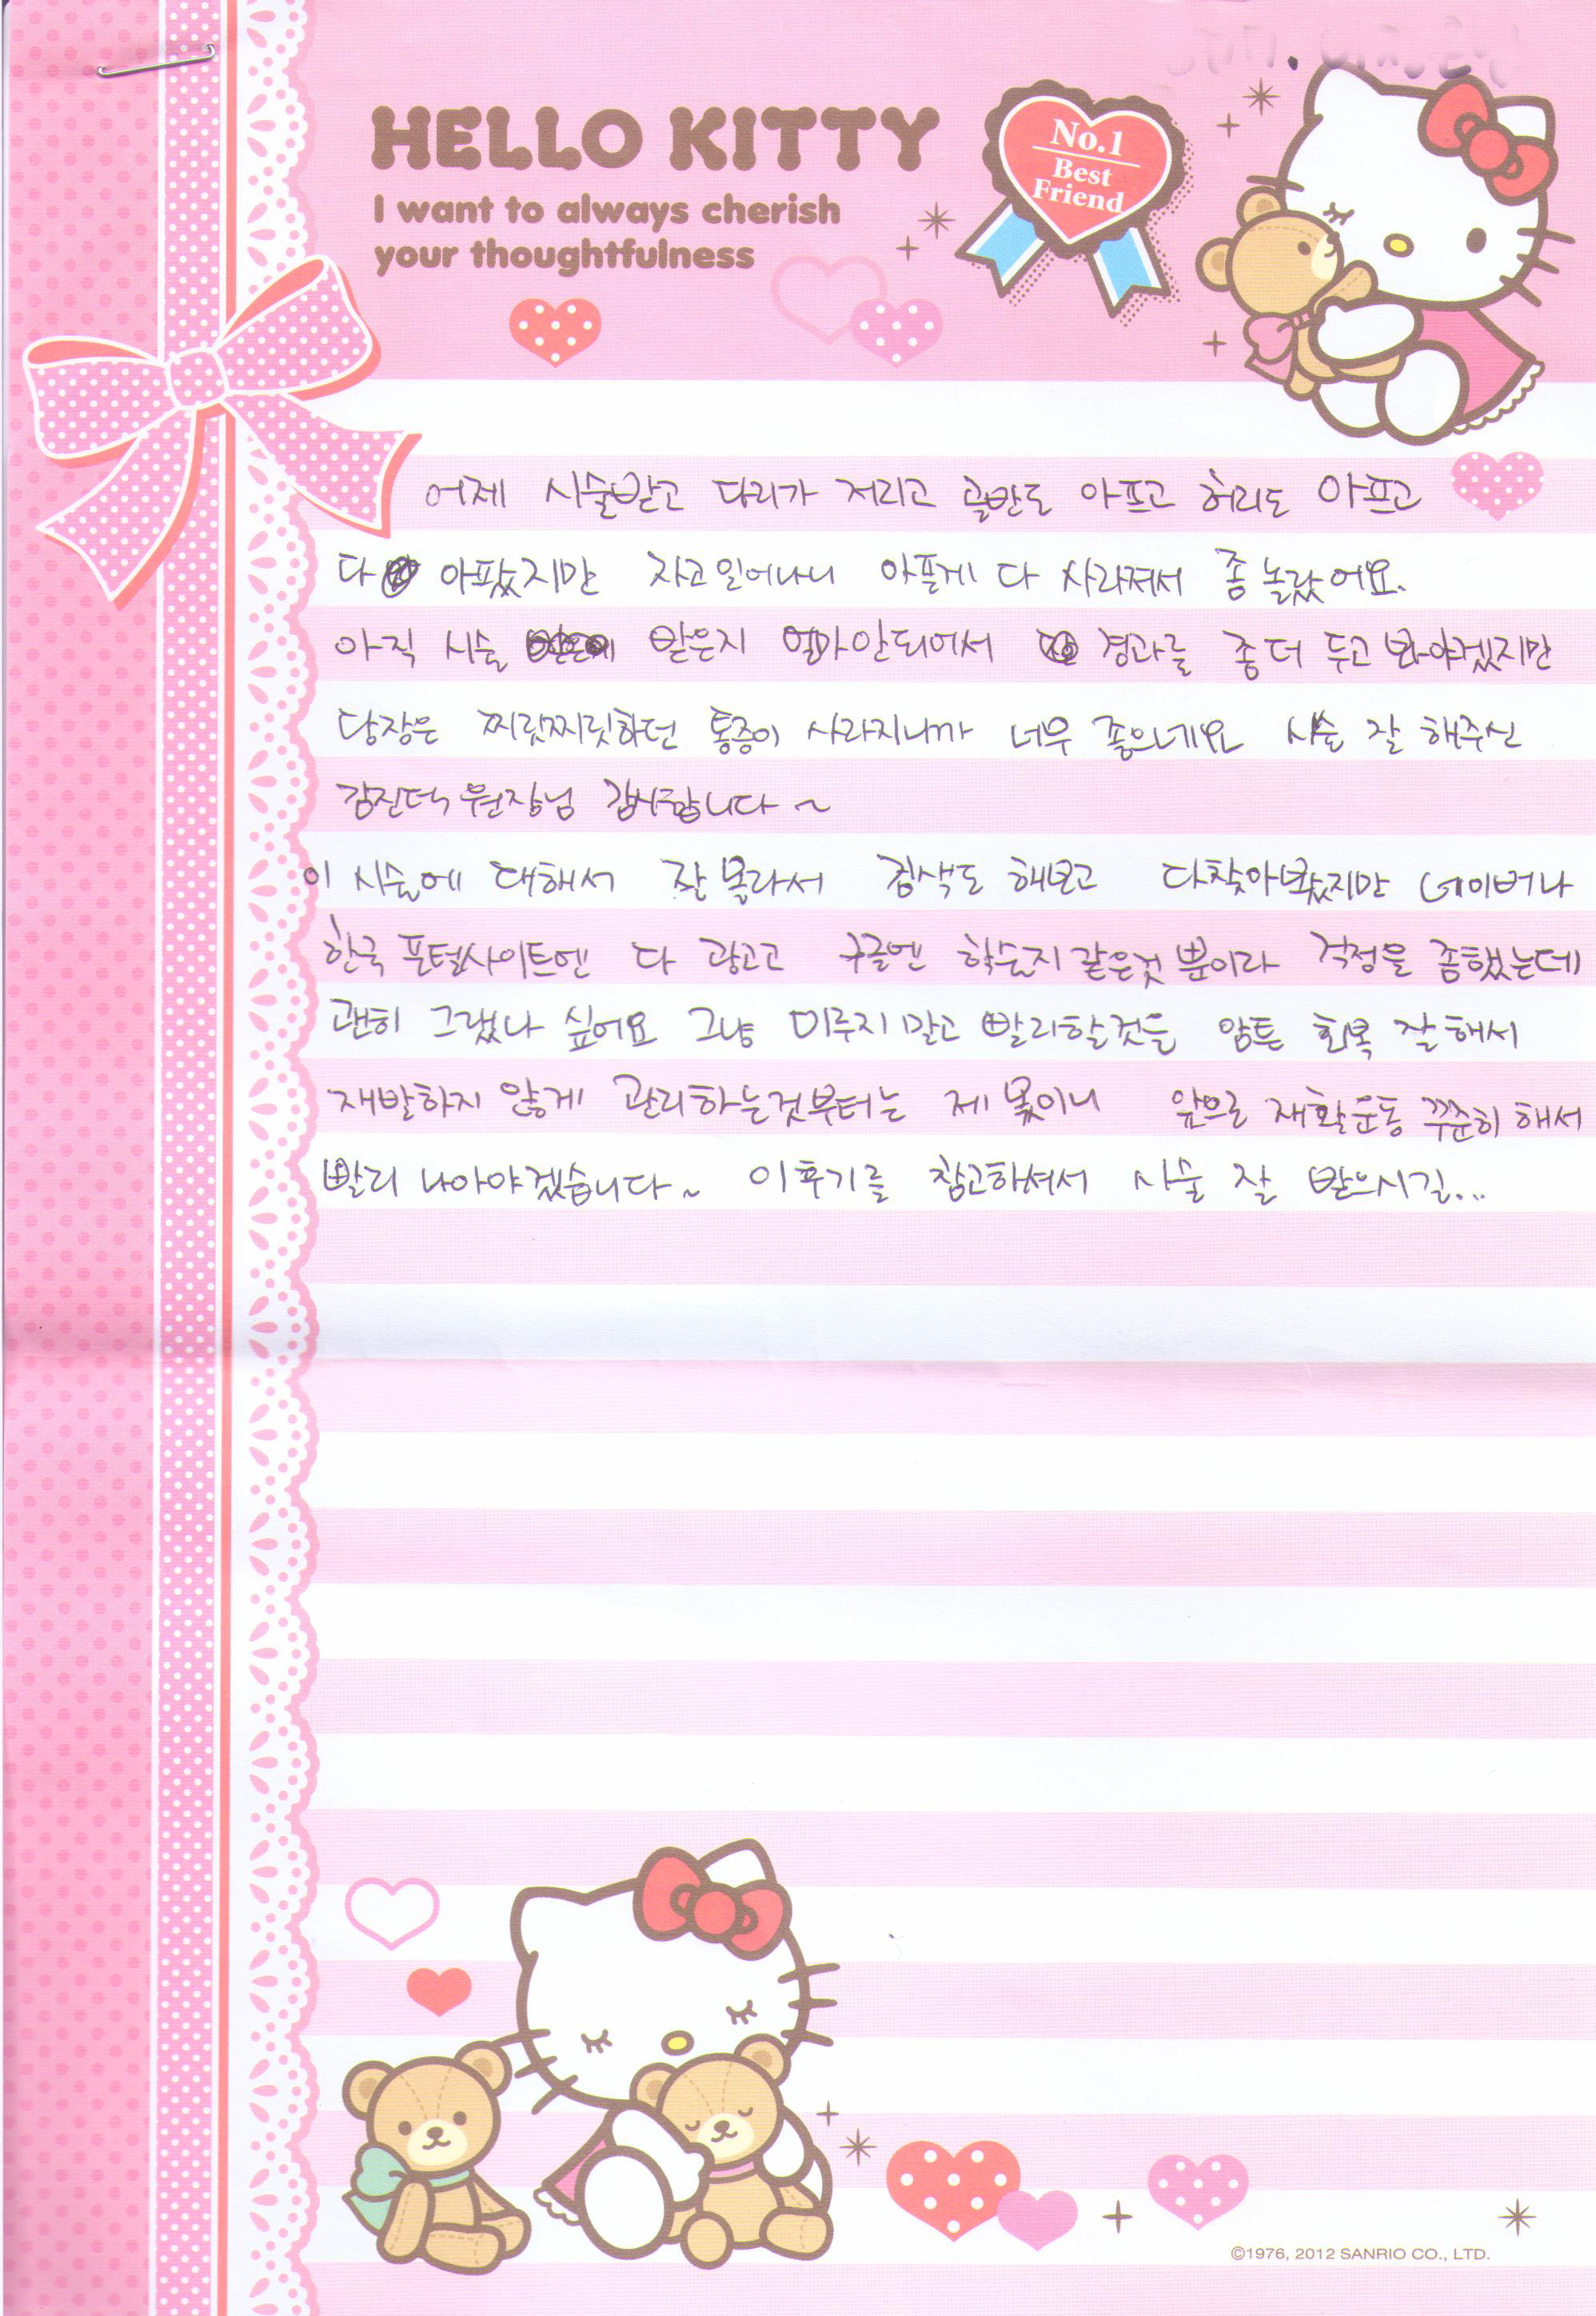 HELLO KITTY
I want to always cherish
your thoughtfulness
No.1
Best
Friend
어제 시술받고 다리가 저리고 골반도 아프고 허리도 아프고
다 아팠지만 자고일어나니 아픈게 다 사라져서 좀 놀랐어요.
아직 시술 받은지 얼마안되어서 경과를 좀더 두고 봐야겠지만
당장은 찌릿찌릿하던 통증이 사라지니까 너무 좋으네요 시술 잘 해주신
김진덕 원장님 감사합니다~
이 시술에 대해서 잘몰라서 검색도 해보고 다찾아봤지만 네이버나
한국 포털사이트엔 다 광고고 구글엔 학술지같은것 뿐이라 걱정을 좀했는데
괜히 그랬나 싶어요 그냥 미루지말고 빨리할것을 암튼 회복 잘해서
재발하지 않게 관리하는것부터는 제 몫이니 앞으로 재활운동 꾸준히 해서
빨리 나아야겠습니다~ 이후기를 참고하셔서 시술 잘 받으시길...
©1976, 2012 SANRIO CO., LTD.